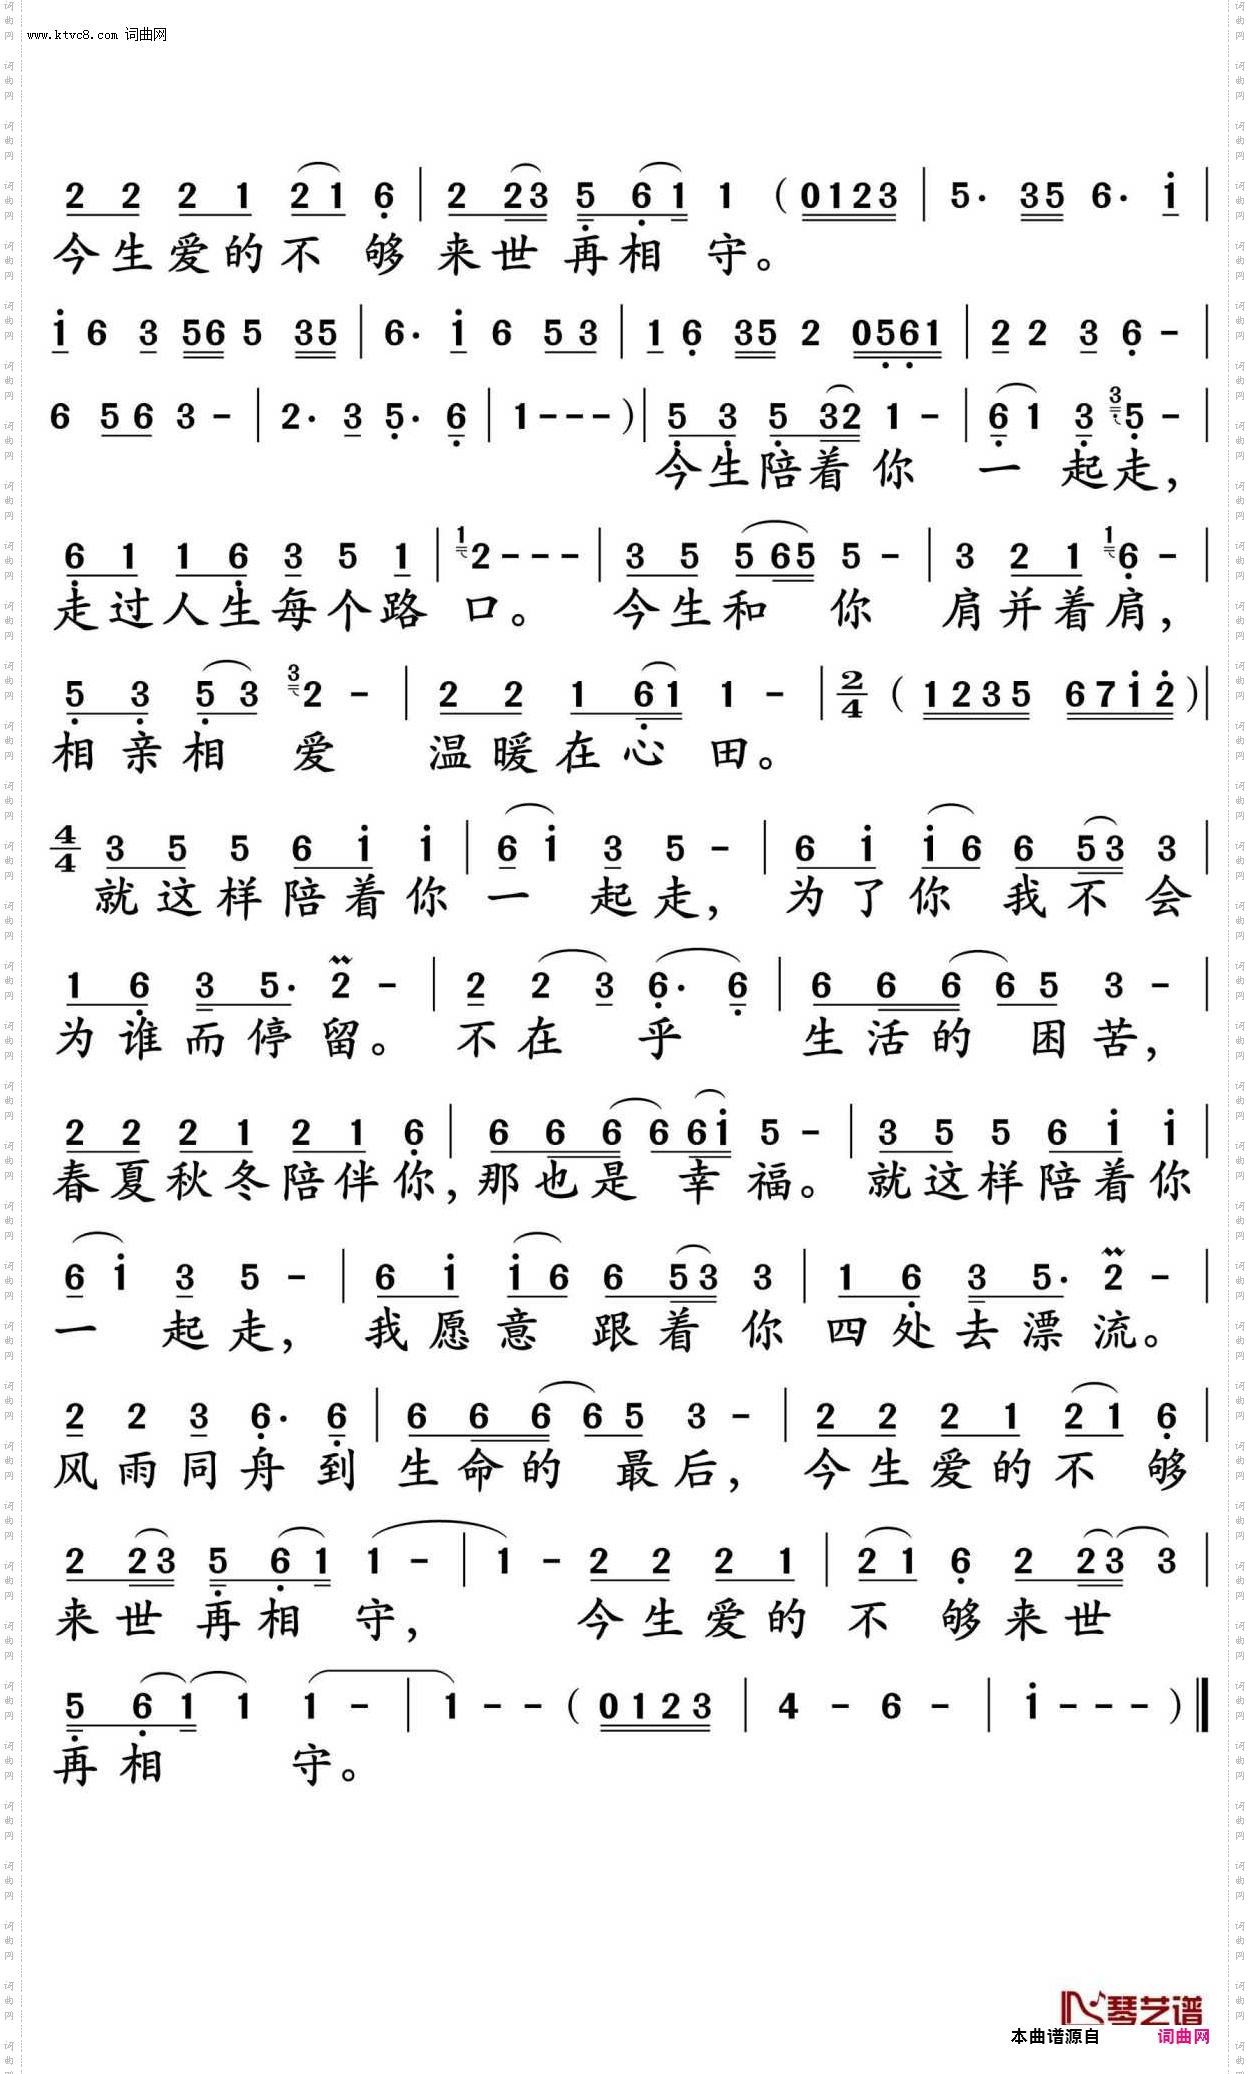 www.ktvc8.com 词曲网
2 2 2 1 2 1 6 | 2 2 3 5 6 1 1 ( 0 1 2 3 | 5 · 3 5 6 · i |
今生爱的不 够 来世再相 守。
i 6 3 5 6 5 3 5 | 6 · i 6 5 3 | 1 6 3 5 2 0 5 6 1 | 2 2 3 6 - |
6 5 6 3 - | 2 · 3 5 · 6 | 1 - - - ) | 5 3 5 3 2 1 - | 6 1 3 3 5 - |
今生陪着你 一 起走，
6 1 1 6 3 5 1 | 1 2 - - - | 3 5 5 6 5 5 - | 3 2 1 1 6 - |
走过人生每个路 口。 今生和 你 肩并着肩，
5 3 5 3 3 2 - | 2 2 1 6 1 1 - | 2/4 ( 1 2 3 5 6 7 i 2 ) |
相亲相 爱 温暖在心 田。
4/4 3 5 5 6 i i | 6 i 3 5 - | 6 i i 6 6 5 3 3 |
就这样陪着你 一 起走， 为了你 我不会
1 6 3 5 · 2 - | 2 2 3 6 · 6 | 6 6 6 6 5 3 - |
为谁而停留。 不在 乎 生活的 困苦，
2 2 2 1 2 1 6 | 6 6 6 6 6 i 5 - | 3 5 5 6 i i |
春夏秋冬陪伴你，那也是 幸 福。 就这样陪着你
6 i 3 5 - | 6 i i 6 6 5 3 3 | 1 6 3 5 · 2 - |
一 起走， 我愿意 跟着你 四处去漂流。
2 2 3 6 · 6 | 6 6 6 6 5 3 - | 2 2 2 1 2 1 6 |
风雨同舟到 生命的 最后， 今生爱的不 够
2 2 3 5 6 1 1 - | 1 - 2 2 2 1 | 2 1 6 2 2 3 3 |
来世再相 守， 今生爱的 不 够来世
5 6 1 1 1 - | 1 - - ( 0 1 2 3 | 4 - 6 - | i - - - )
再相 守。
琴艺谱
本曲谱源自 词曲网